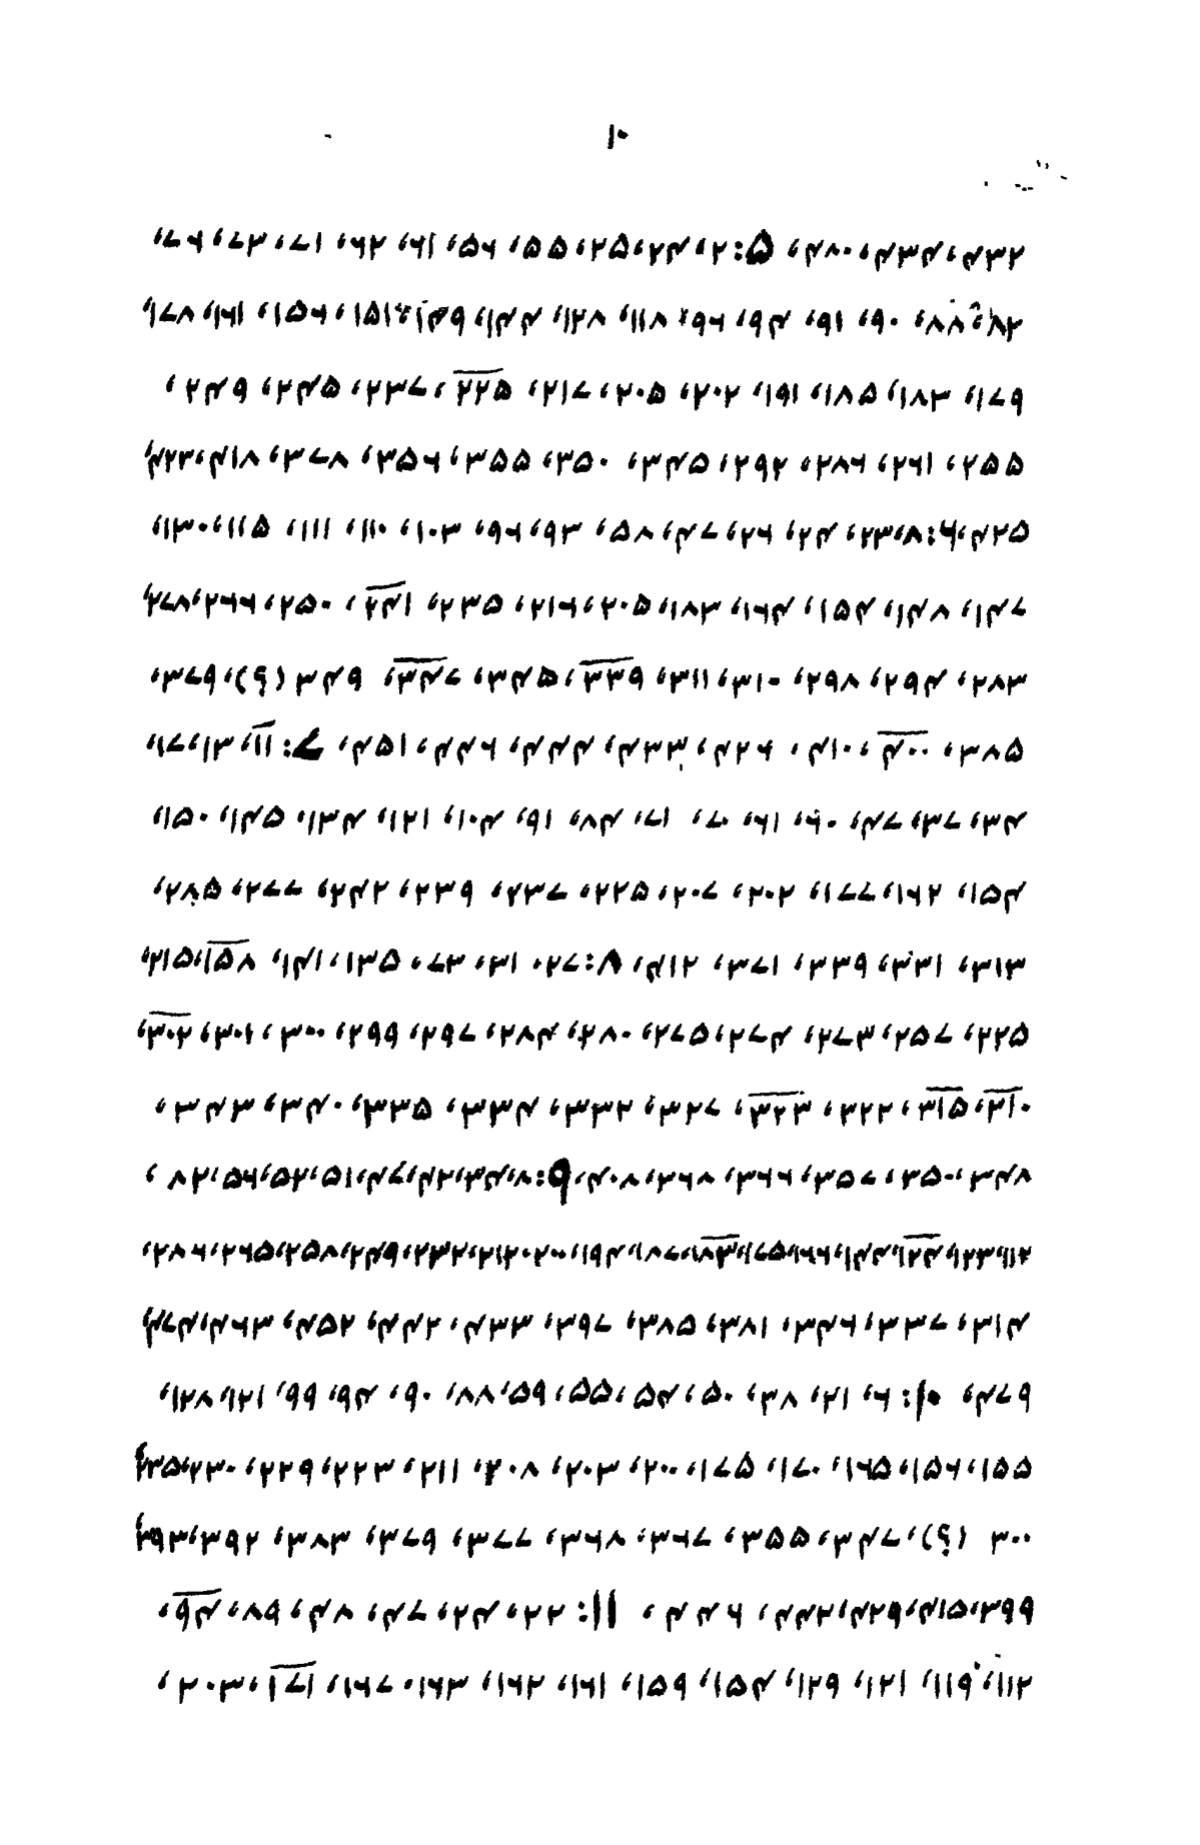 ۱۰
۴۳۲، ۴۳۴، ۴۸۰، ۵: ۲، ۲۴، ۲۵، ۵۵، ۵۶، ۶۱، ۶۲، ۷۱، ۷۳، ۷۶،
۸۲، ۸۸، ۹۰، ۹۱، ۹۴، ۹۶، ۱۱۸، ۱۲۸، ۱۴۴، ۱۴۹، ۱۵۱، ۱۵۶، ۱۶۱، ۱۷۸،
۱۷۹، ۱۸۳، ۱۸۵، ۱۹۱، ۲۰۲، ۲۰۵، ۲۱۷، ۲۲۵، ۲۳۷، ۲۴۵، ۲۴۹،
۲۵۵، ۲۶۱، ۲۸۶، ۲۹۲، ۳۴۵، ۳۵۰، ۳۵۵، ۳۵۶، ۳۷۸، ۴۱۸، ۴۲۳،
۴۲۵، ۶: ۸، ۲۳، ۲۴، ۲۶، ۴۷، ۵۸، ۹۳، ۹۶، ۱۰۳، ۱۱۰، ۱۱۱، ۱۱۵، ۱۳۰،
۱۴۷، ۱۴۸، ۱۵۴، ۱۶۴، ۱۸۳، ۲۰۵، ۲۱۶، ۲۳۵، ۲۴۱، ۲۵۰، ۲۶۶، ۲۷۸،
۲۸۳، ۲۹۴، ۲۹۸، ۳۱۰، ۳۱۱، ۳۳۹، ۳۴۵، ۳۴۷، ۳۴۹ (؟)، ۳۷۹،
۳۸۵، ۴۰۰، ۴۱۰، ۴۲۶، ۴۳۳، ۴۴۴، ۴۴۶، ۴۵۱، ۷: ۱۱، ۱۳، ۱۷،
۳۴، ۳۷، ۴۷، ۶۰، ۶۱، ۷۰، ۷۱، ۷۴، ۹۱، ۱۰۴، ۱۲۱، ۱۳۴، ۱۴۵، ۱۵۰،
۱۵۴، ۱۶۲، ۱۷۷، ۲۰۲، ۲۰۷، ۲۲۵، ۲۳۷، ۲۳۹، ۲۴۲، ۲۷۷، ۲۸۵،
۳۱۳، ۳۳۱، ۳۳۹، ۳۷۱، ۴۱۲، ۸: ۲۷، ۳۱، ۷۳، ۱۳۵، ۱۴۱، ۱۵۸، ۲۱۵،
۲۲۵، ۲۵۷، ۲۷۳، ۲۷۴، ۲۷۵، ۲۸۰، ۲۸۴، ۲۹۷، ۲۹۹، ۳۰۰، ۳۰۱، ۳۰۲،
۳۱۰، ۳۱۵، ۳۲۲، ۳۲۳، ۳۲۷، ۳۳۲، ۳۳۴، ۳۳۵، ۳۴۰، ۳۴۳،
۳۴۸، ۳۵۰، ۳۵۷، ۳۶۶، ۳۶۸، ۴۰۸، ۹: ۸، ۳۴، ۴۲، ۴۷، ۵۱، ۵۲، ۵۶، ۸۲،
۱۱۲، ۱۲۳، ۱۲۴، ۱۴۴، ۱۶۶، ۱۷۵، ۱۷۳، ۱۸۷، ۱۹۴، ۲۰۰، ۲۱۲، ۲۳۲، ۲۴۹، ۲۵۸، ۲۶۵، ۲۸۶،
۳۱۴، ۳۳۷، ۳۴۶، ۳۸۱، ۳۸۵، ۳۹۷، ۴۳۳، ۴۴۲، ۴۵۲، ۴۶۳، ۴۷۴،
۴۷۹، ۱۰: ۶، ۲۱، ۳۸، ۵۰، ۵۴، ۵۵، ۵۹، ۸۸، ۹۰، ۹۴، ۹۹، ۱۲۱، ۱۲۸،
۱۵۵، ۱۵۶، ۱۶۵، ۱۷۰، ۱۷۵، ۲۰۰، ۲۰۳، ۲۰۸، ۲۱۱، ۲۲۳، ۲۲۹، ۲۳۰، ۲۳۵،
۳۰۰ (؟)، ۳۴۷، ۳۵۵، ۳۶۷، ۳۶۸، ۳۷۷، ۳۷۹، ۳۸۳، ۳۹۲، ۳۹۳،
۳۹۹، ۴۱۵، ۴۲۹، ۴۴۲، ۴۴۶، ۱۱: ۲۲، ۲۴، ۴۷، ۴۸، ۸۹، ۹۴،
۱۱۲، ۱۱۹، ۱۲۱، ۱۲۹، ۱۵۴، ۱۵۹، ۱۶۱، ۱۶۲، ۱۶۳، ۱۶۷، ۱۷۱، ۲۰۳،